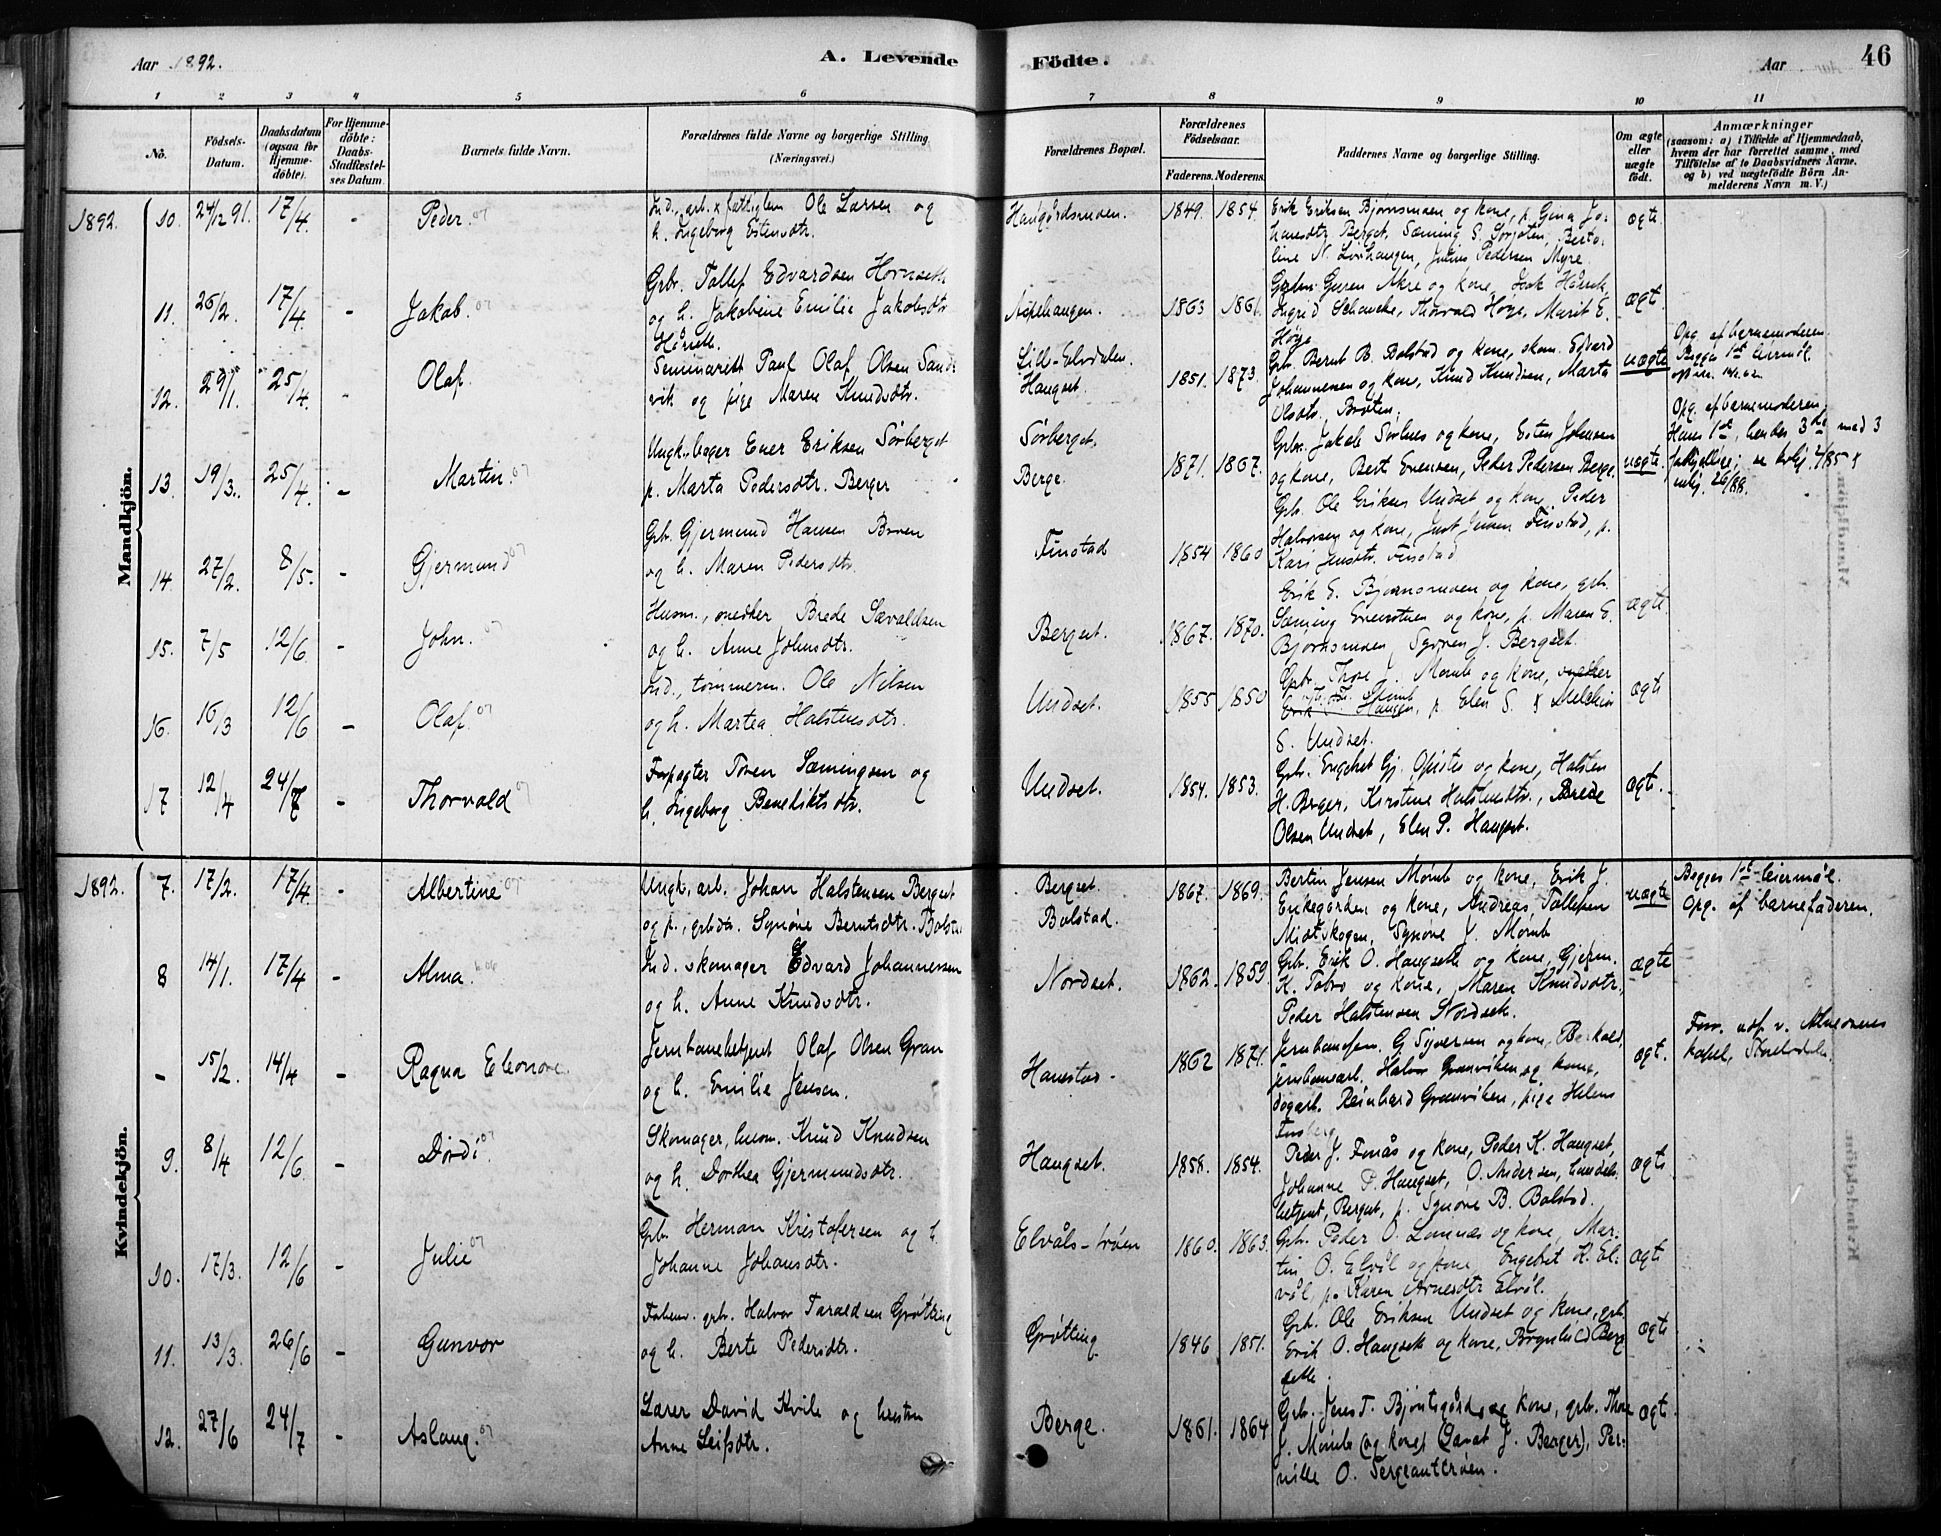 Aar 1892.
A. Levende Födte.
Aar
46
1 2 3 4 5 6 7 8 9 10 11
No.
Födsels-
Datum.
Daabsdatum
(ogsaa for
Hjemme-
döbte).
For Hjemme-
döbte:
Daabs-
Stadfæstel-
ses Datum.
Barnets fulde Navn.
Forældrenes fulde Navne og borgerlige Stilling
(Næringsvei.)
Forældrenes Bopæl.
Forældrenes
Födselsaar.
Faderens. Moderens.
Faddernes Navne og borgerlige Stilling.
Om ægte
eller
uægte
födt.
Anmærkninger
(saasom: a) i Tilfælde af Hjemmedaab,
hvem der har forrettet samme, med
Tilföielse af to Daabsvidners Navne.
og b) ved uægtefödte Börn An-
melderens Navn m. V.)
Mandkjön.
1892. 10. 24/12 91. 17/4. - Peder. 07
Ind., arb. x fattiglem Ole Larsen og
h. Ingeborg Estensdtr.
Haugårdsmoen. 1849. 1854.
Erik Eriksen Bjørnsmoen og kone, p. Gina Jo-
hansdtr. Berget, Sæming S.
N. Løvhaugen, Julius Pedersen Myre.
ægte
11. 26/2. 17/4. - Jakob. 07
Grbr. Tollef Edvardsen Hornseth
og h. Jakobine Emilie Jakobsdtr.
Aspehaugen. 1863 1861.
Akre og kone,
Ingrid Schanche, Thorvald Høye, Marit E.
Høye.
ægt.
12. 29/1. 25/4. - Olaf.
Seminarist Paul Olaf Olsen Sand-
vik og pige Maren Knudsdtr.
Lill-Elvdalen.
Haugset. 1851. 1873.
Grb. Bernt B. Bolstad og kone, skom. Edvard
Johannesen og kone, Knud Knudsen, Marta
Olsdtr. Bråten.
uægte
Opg. af barnemoderen.
Begges 1st leiermål.
13. 19/3. 25/4. - Martin. 07
Ungk. bager Ener Eriksen Sørberget
p. Marta Pedersdtr. Berger
Sørberget.
Berge. 1871. 1867.
Grbr. Jakob Sørhus og kone, Esten Johnsen
og kone, Bert Evensen, Peder Pedersen Berge.
uægte.
Opg. af barnemoderen.
Hans 1st, hendes 3die med 3
14. 27/2. 8/5. - Gjermund 07
Grb. Gjermund Hansen Broen
og h. Maren Pedersdtr.
Finstad 1854 1860
Grb. Ole Eriksen Undset og kone, Peder
Halvorsen og kone, Just Jensen Finstad, p.
Kari Jensdtr. Finstad.
15. 7/5 12/6 - John. 07
Husm., snedker Brede Sævaldsen
og h. Anne Johnsdtr.
Bergset. 1867. 1870.
Erik E. Bjørnsmoen og kone, grb.
Sæming Enerstuen og kone, p. Maren E.
Bjørnsmoen, Syver J. Bergset.
ægte.
16. 16/3 12/6 - Olaf. 07
Ind., tømmerm. Ole Nilsen
og h. Martea Halstensdtr.
Undset. 1855 1850
Grb. Thore J. Momb og kone,
p. Elen S. & Melchior
S. Undset.
ægte
17 12/4 24/7 - Thorvald 07
Forpagter Toren Sæmingsen og
h. Ingeborg Benediktsdtr.
Undset. 1854. 1853.
Grb. Engebret Gj. Opsitu og kone, Halsten
H. Berger, Kirstine Halstensdtr., Brede
Olsen Undset, Elen P. Haugset.
ægt.
Kvindekjön.
1892. 7. 17/2. 17/4. - Albertine 07
Ungk., arb. Johan Halstensen Bergset
og p., grbdtr. Synøve Berntsdtr. Bolstad
Bergset.
Bolstad. 1867. 1869.
Bertin Jensen Momb og kone, Erik J.
Enkegården og kone, Andreas Tollefsen
Midtskogen, Synøve J. Momb
uægte
Begges 1st leiermål.
Opg. af barnefaderen.
8 14/1. 17/4 - Alma.
Ind. skomager Edvard Johannessen
og h. Anne Knudsdtr.
Nordset. 1862. 1859.
Grb. Erik O. Haugseth og kone, Gjerm.
K. Tobro og kone, Maren Knudsdtr.,
Peder Halstensen Nordseth.
ægte
- 15/2. 14/4 - Ragna Eleonore.
Jernbanebetjent Olaf Olsen Gran
og h. Emilie Jensen.
Hanestad - 1862 1871.
Jernbaneform. G. Syversen og kone,
jernbanearb. Halvor Grønviken og kone,
dagarb. Reinhard Grønviken, pige Helene
Furuberg
ægt.
Forr. udf. v. Atneosens
kapel, Storelvdalen.
9. 8/4 12/6 - Dordi. 07
Skomager, husm. Knud Knudsen
og h. Dorthea Gjermundsdtr.
Haugset. 1858. 1854.
Peder J. Fonås og kone, Peder K. Haugset,
Johanne P. Haugset, O. Andersen, handels-
betjent, Bergset, p. Synøve B. Bolstad.
ægte
10. 17/3. 12/6 - Julie 07
Grb. Herman Kristofersen og h.
Johanne Johansdtr.
Elvåls-trøen 1860. 1863.
Grb. Peder O. Lomnæs og kone, Mar-
tin O. Elvål og kone, Engebret K. El-
vål, p. Karen Arnesdtr. Elvål.
ægte
11. 13/3. 26/6 - Gunvor
Forhenv. grb. Halvor Taraldsen Grøtting
og h. Berte Pedersdtr.
Grøtting 1846 1851.
Grb. Ole Eriksen Undset og kone, grb.
Erik O. Haugseth og kone,
ægte
12. 27/6 24/7 - Aslaug. 07
Lærer David Kvile og hustru
Anne Leifsdtr.
Berge. 1861. 1864
Grb. Jens T. Bjøntegård og kone, grb. Thore
J. Momb (og kone) J. Berger), Per-
nille O. Sergeanttrøen.
ægte.